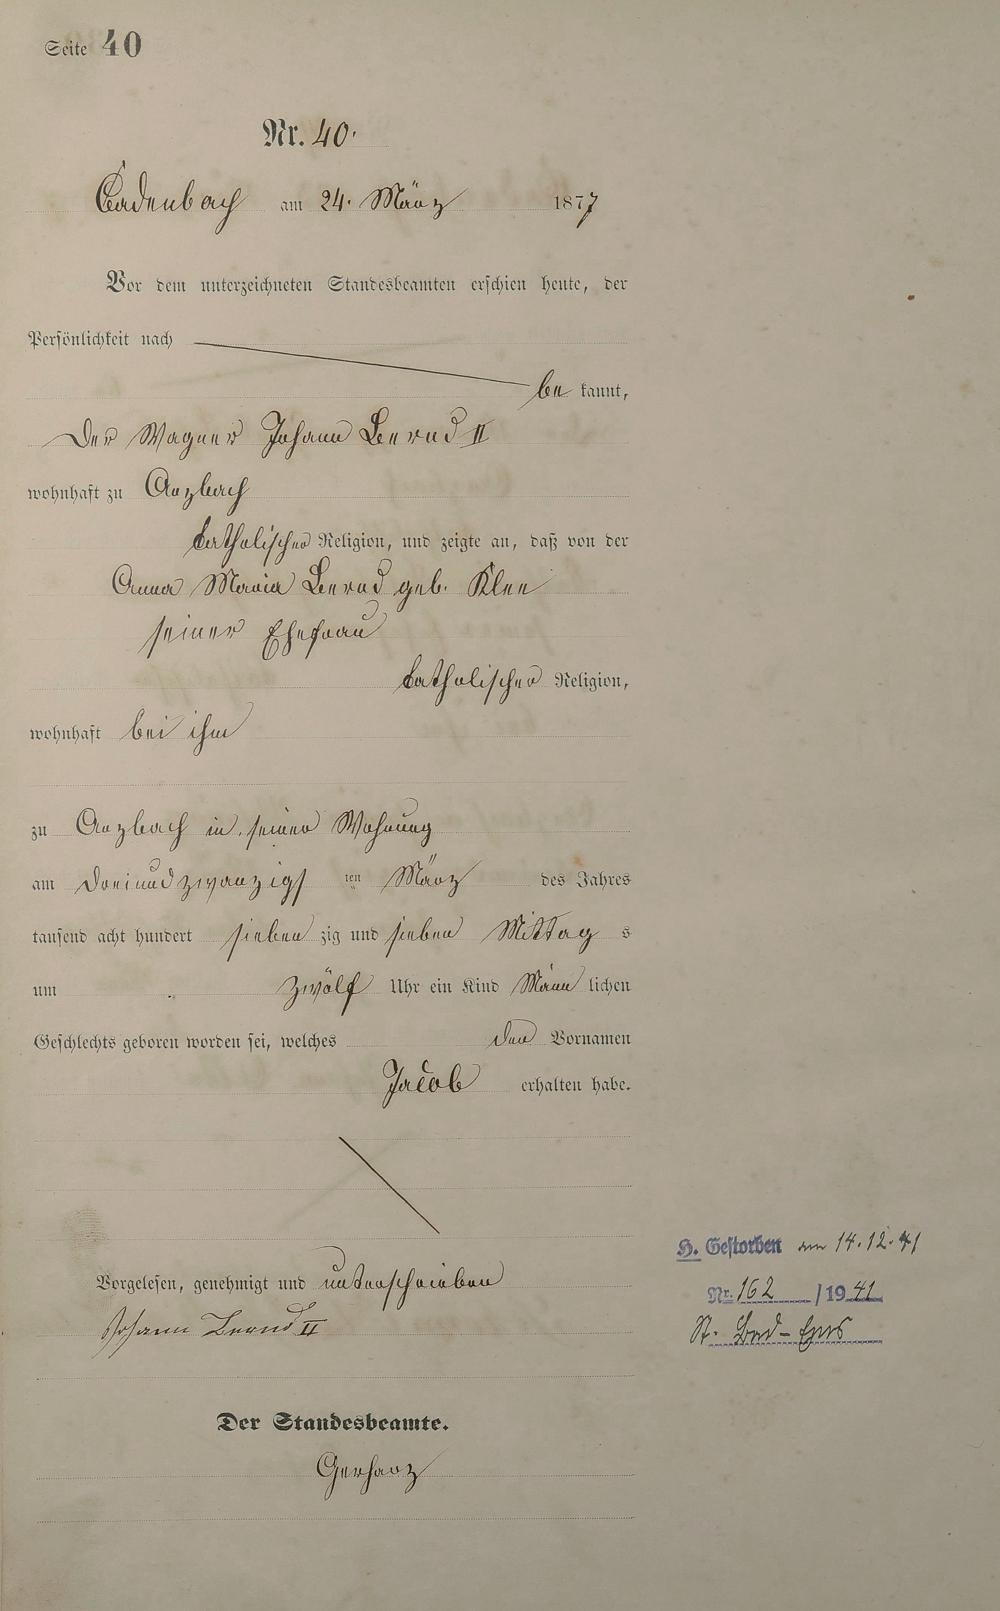 Seite 40
Nr. 40.
Cadenbach am 24. März 1877
Vor dem unterzeichneten Standesbeamten erschien heute, der
Persönlichkeit nach
bekannt,
Der Wagner Johann Bernd II
wohnhaft zu Arzbach
katholischer Religion, und zeigte an, daß von der
Anna Maria Bernd geb. Klee
seiner Ehefrau
katholischer Religion,
wohnhaft bei ihm
zu Arzbach in seiner Wohnung
am dreiundzwanzigsten März des Jahres
tausend acht hundert siebenzig und sieben Mittags
um zwölf Uhr ein Kind Männlichen
Geschlechts geboren worden sei, welches den Vornamen
Jacob erhalten habe.
Vorgelesen, genehmigt und unterschrieben
Johann Bernd II
Der Standesbeamte.
Gerharz
H. Gestorben am 14.12.41
Nr. 162 /1941
St. Bad-Ems